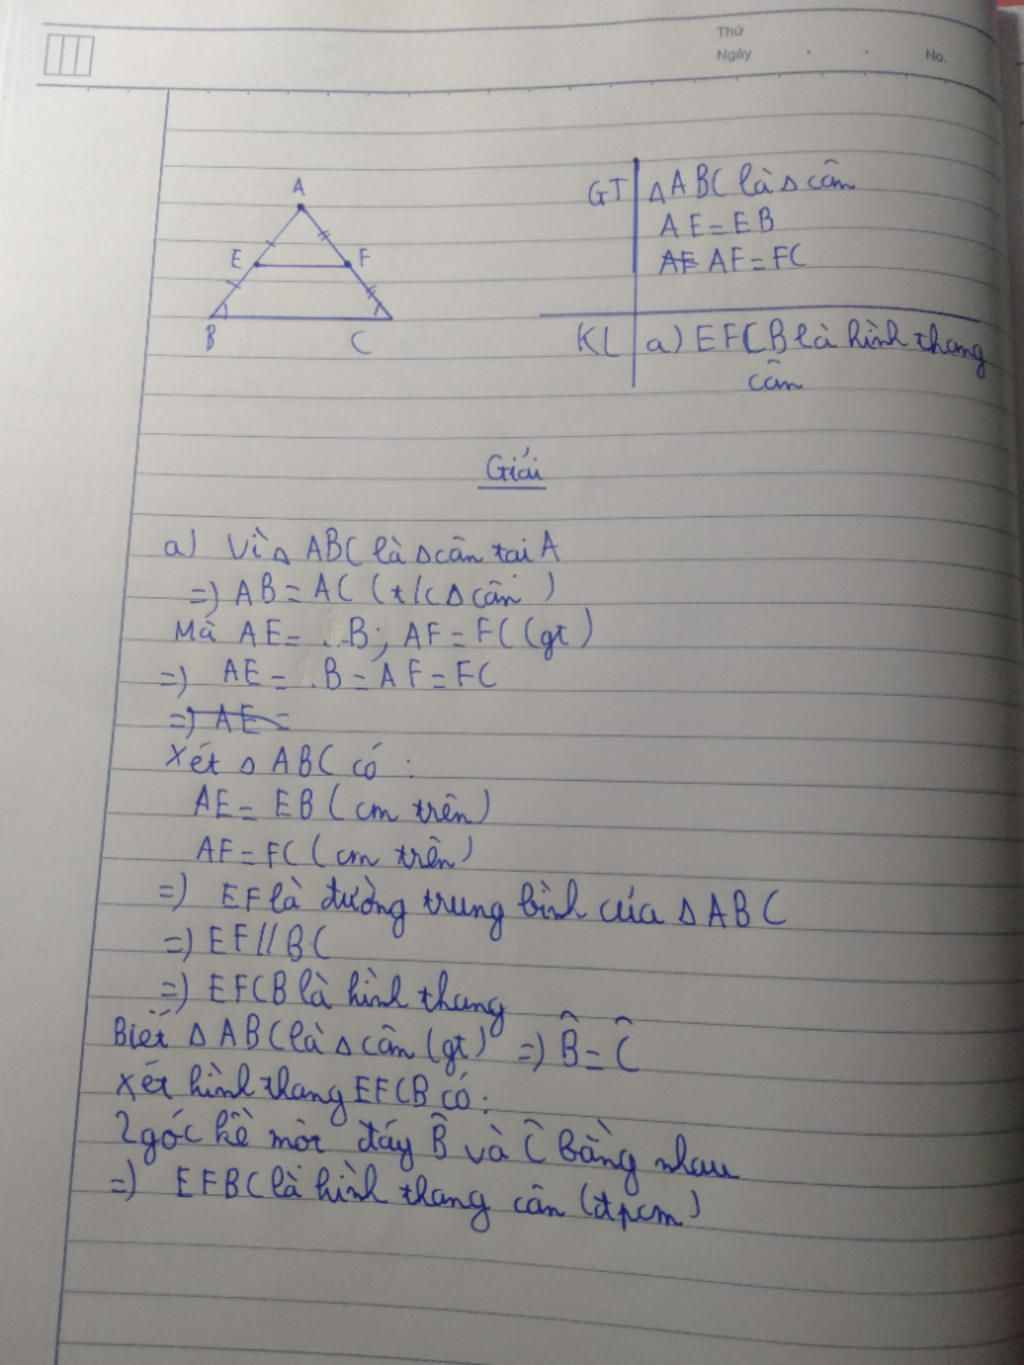 Thứ
Ngày
No.
A
E F
B C
GT ΔABC là Δ cân
AE = EB
AF AF = FC
KL a) EFCB là hình thang
cân
Giải
a) Vì Δ ABC là Δ cân tại A
=) AB = AC (t/c Δ cân)
Mà AE = B; AF = FC (gt)
=) AE = B = AF = FC
=) AE =
Xét Δ ABC có :
AE = EB (cm trên)
AF = FC (cm trên)
=) EF là đường trung bình của Δ ABC
=) EF // BC
=) EFCB là hình thang
Biết Δ ABC là Δ cân (gt) =) B̂ = Ĉ
Xét hình thang EFCB có :
2 góc kề một đáy B̂ và Ĉ bằng nhau
=) EFBC là hình thang cân (đpcm)